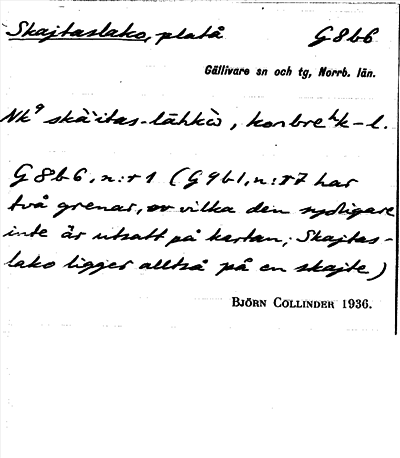 Skajtaslako, platå G8b6
Gällivare sn och tg, Norrb. län.
Nk⁹ skài̯tas-lähkò,
G 8b6, n:r 1 (G 9b1, n:r 7 har
två grenar, av vilka den sydligare
inte är utsatt på kartan; Skajtas-
lako ligger alltså på en skajte)
BJÖRN COLLINDER 1936.